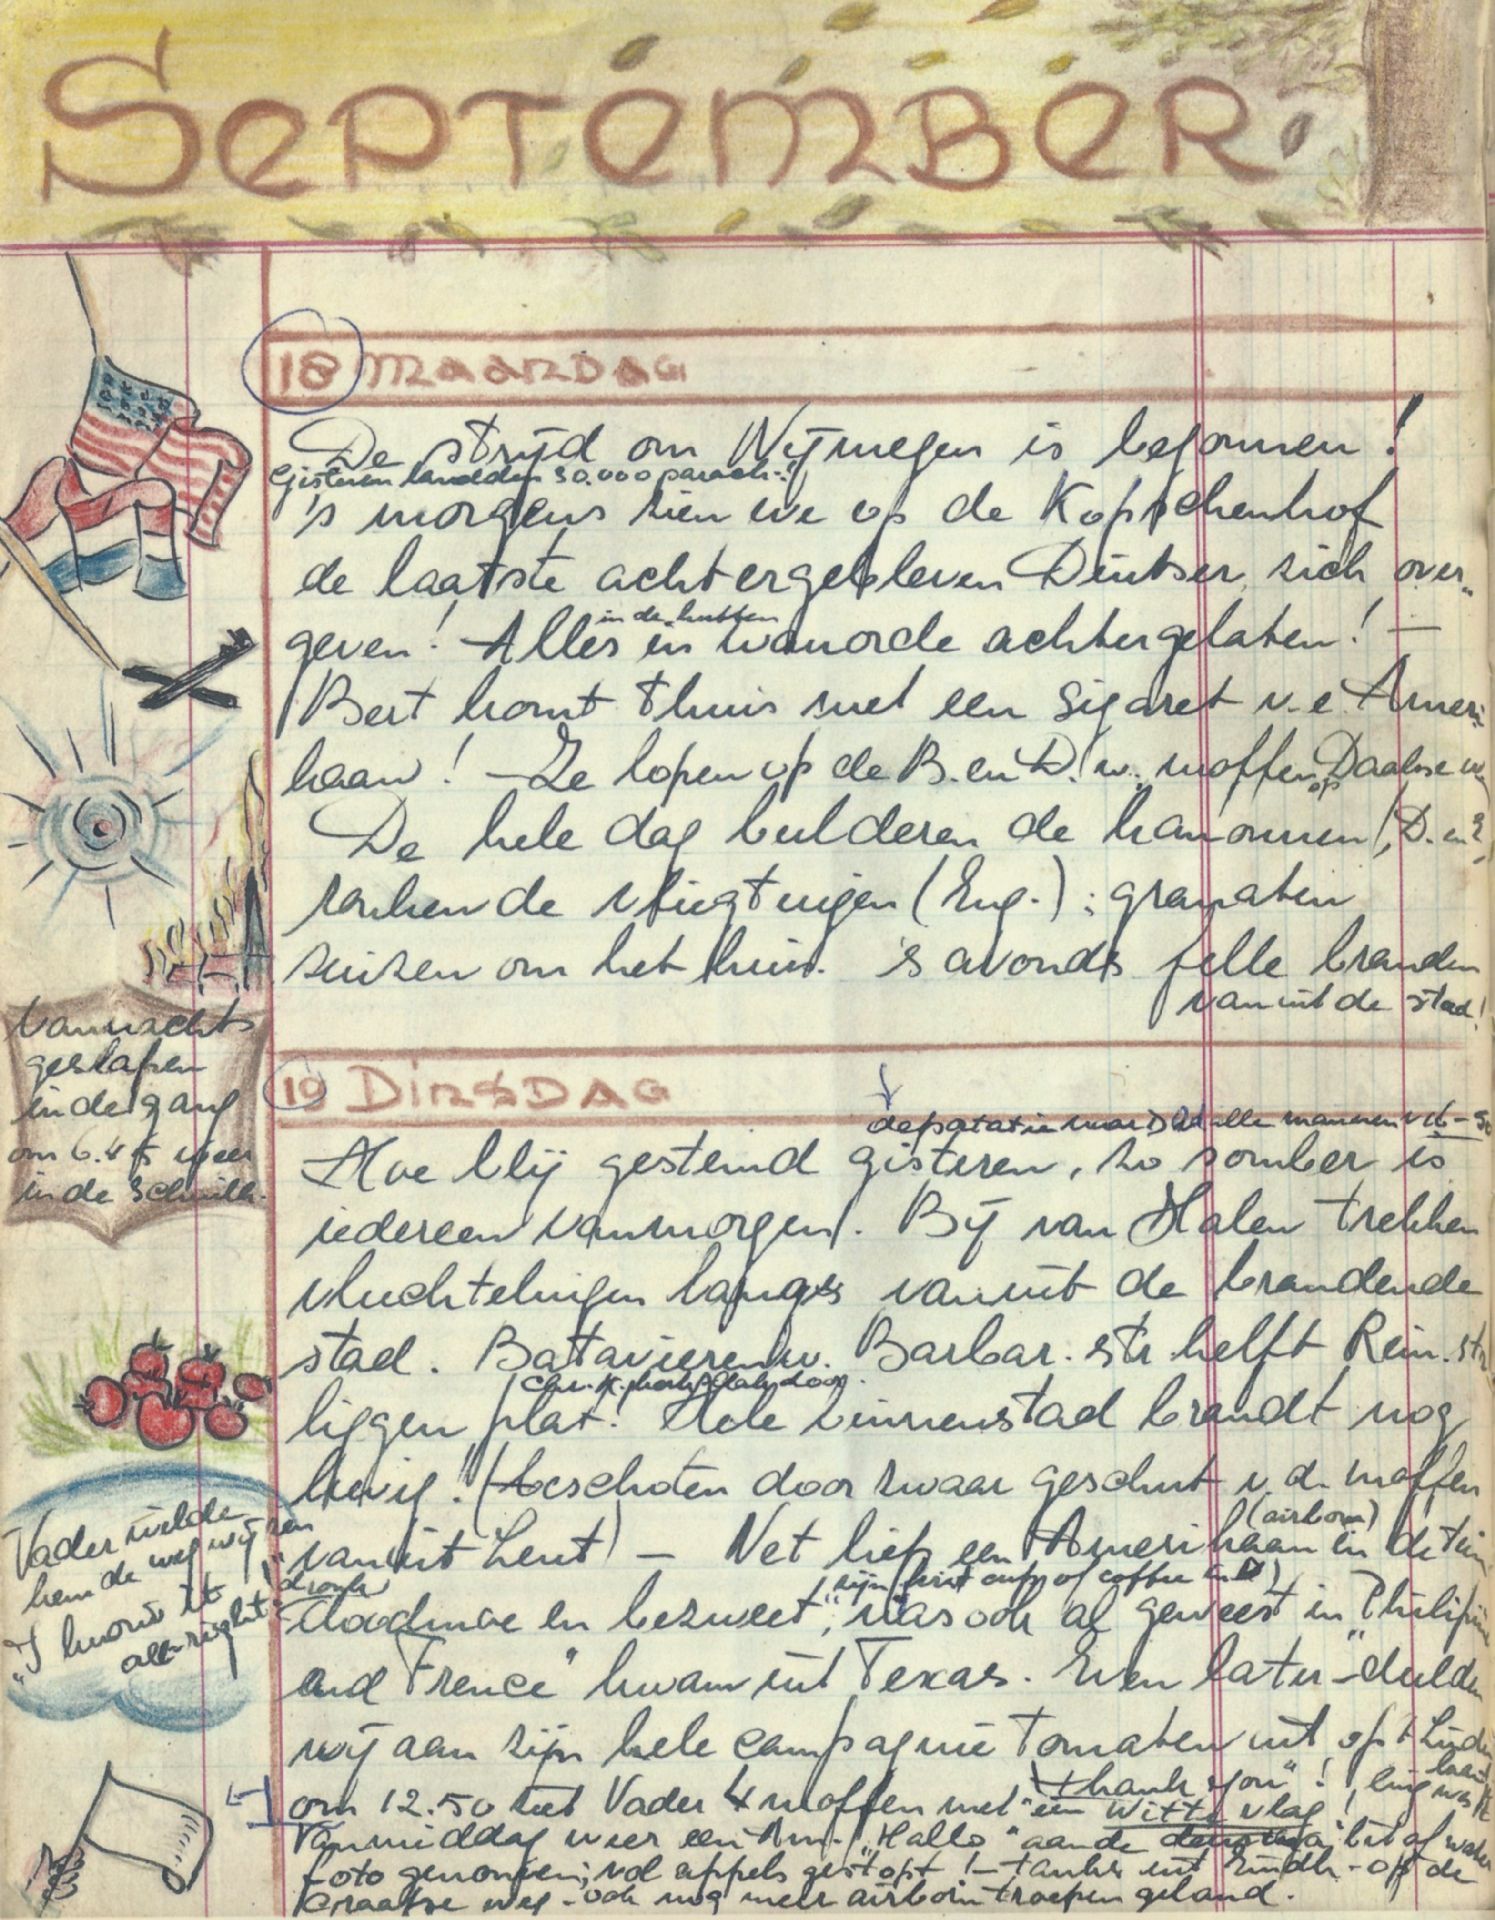 September.
18 Maandag
De strijd om Nijmegen is begonnen!
Gisteren landden 30.000 parach.!
's morgens zien we op de Kopschenhof
de laatste achtergebleven Duitser zich over-
geven! Alles in wanorde achtergelaten! -
in de hutten
Bert komt thuis met een sigaret v.e. Ameri-
kaan! - Ze lopen op de B. en D. w. moffen op Daalse w
De hele dag bulderen de kanonnen, D. en E,
ronkende vliegtuigen (Eng.); granaten
suizen om het huis. 's avonds felle branden
vanuit de stad!
Vannacht
geslapen
in de gang
om 6.45 weer
in de schuilk.
19 Dinsdag
alle mannen v 16-50
Hoe blij gestemd gisteren, zo somber is
iedereen vanmorgen. Bij van Halen trekken
vluchtelingen langs vanuit de brandende
stad. Batavierenw. Barbar. str. helft Rein. str
liggen plat! Hele binnenstad brandt nog
hevig! (beschoten door zwaar geschut v. d. moffen
vanuit Lent) - Net liep een Amerikaan in de tuin
(airborn)
doodmoe en bezweet, "was ook al geweest in Philipijne
dronk zijn first cup of coffee
and Frence" kwam uit Texas. Even later deelden
wij aan zijn hele campagnie tomaten uit op 't
"thank you"!
Vader wilde
hem de weg wijzen
"I know it
all-right"
om 12.50 ziet Vader 4 moffen met een witte vlag!
Vanmiddag weer een Am. "Hallo" aan de
foto genomen; vol appels gestopt! - tanks uit Eindh. - op de
Graafse weg - ook nog meer airborn troepen geland.